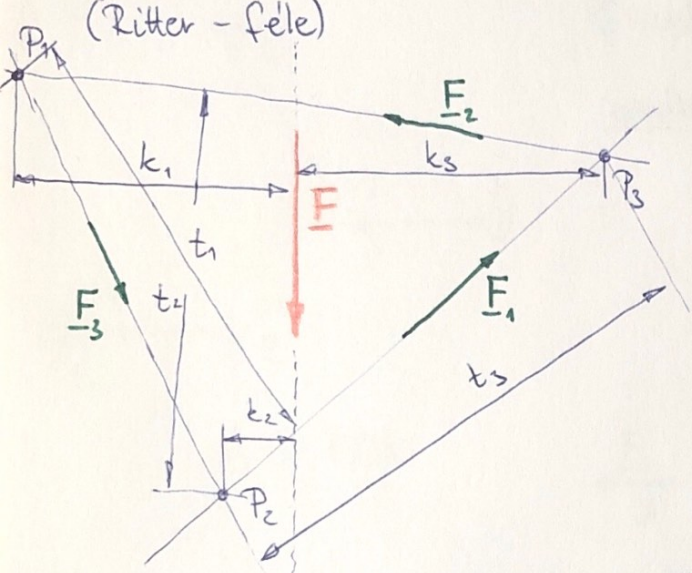 (Ritter-féle)
P₁
F₂
k₁
k₃
F
P₃
t₁
F₃
t₂
F₁
t₃
k₂
P₂